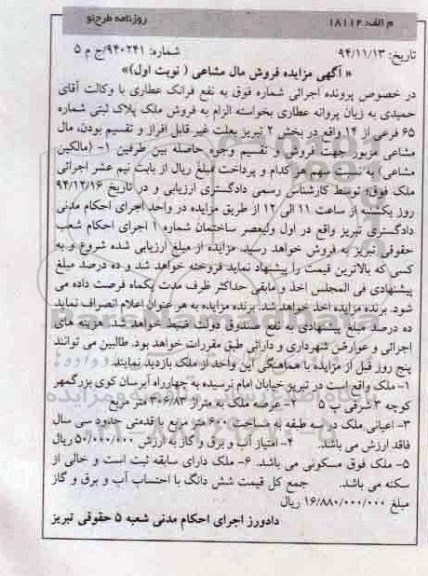 م الف: ۱۸۱۱۲ روزنامه طرح‌نو
تاریخ: ۹۴/۱۱/۱۳ شماره: ۹۴۰۲۴۱/ج م ۵
« آگهی مزایده فروش مال مشاعی ( نوبت اول)»
در خصوص پرونده اجرائی شماره فوق به نفع فرانک عطاری با وکالت آقای
حمیدی به زیان پروانه عطاری بخواسته الزام به فروش ملک پلاک ثبتی شماره
۶۵ فرعی از ۱۴ واقع در بخش ۲ تبریز بعلت غیر قابل افراز و تقسیم بودن، مال
مشاعی مزبور جهت فروش و تقسیم وجوه حاصله بین طرفین ۱- (مالکین
مشاعی) به نسبت سهم هر کدام و پرداخت مبلغ ریال از بابت نیم عشر اجرائی
ملک فوق، توسط کارشناس رسمی دادگستری ارزیابی و در تاریخ ۹۴/۱۲/۱۶
روز یکشنبه از ساعت ۱۱ الی ۱۲ از طریق مزایده در واحد اجرای احکام مدنی
دادگستری تبریز واقع در اول ولیعصر ساختمان شماره ۱ اجرای احکام شعب
حقوقی تبریز به فروش خواهد رسید. مزایده از مبلغ ارزیابی شده شروع و به
کسی که بالاترین قیمت را پیشنهاد نماید فروخته خواهد شد و ده درصد مبلغ
پیشنهادی فی المجلس اخذ و مابقی حداکثر ظرف مدت یکماه فرصت داده می
شود. برنده مزایده اخذ خواهد شد. برنده مزایده به هر عنوان اعلام انصراف نماید
ده درصد مبلغ پیشنهادی به نفع صندوق دولت ضبط خواهد شد. هزینه های
اجرائی و عوارض شهرداری و دارائی طبق مقررات خواهد بود. طالبین می توانند
پنج روز قبل از مزایده با هماهنگی این واحد از ملک بازدید نمایند.
۱- ملک واقع است در تبریز خیابان امام نرسیده به چهارراه آبرسان کوی بزرگمهر
کوچه ۳ شرقی پ ۵ ۲- عرصه ملک به متراژ ۳۰۶/۸۳ متر مربع
۳- اعیانی ملک در سه طبقه به مساحت ۶۰۰ متر مربع با قدمتی حدود سی سال
فاقد ارزش می باشد. ۴- امتیاز آب و برق و گاز به ارزش ۵۰/۰۰۰/۰۰۰ ریال
۵- ملک فوق مسکونی می باشد. ۶- ملک دارای سابقه ثبت است و خالی از
سکنه می باشد. جمع کل قیمت شش دانگ با احتساب آب و برق و گاز
مبلغ ۱۶/۸۸۰/۰۰۰/۰۰۰ ریال
دادورز اجرای احکام مدنی شعبه ۵ حقوقی تبریز